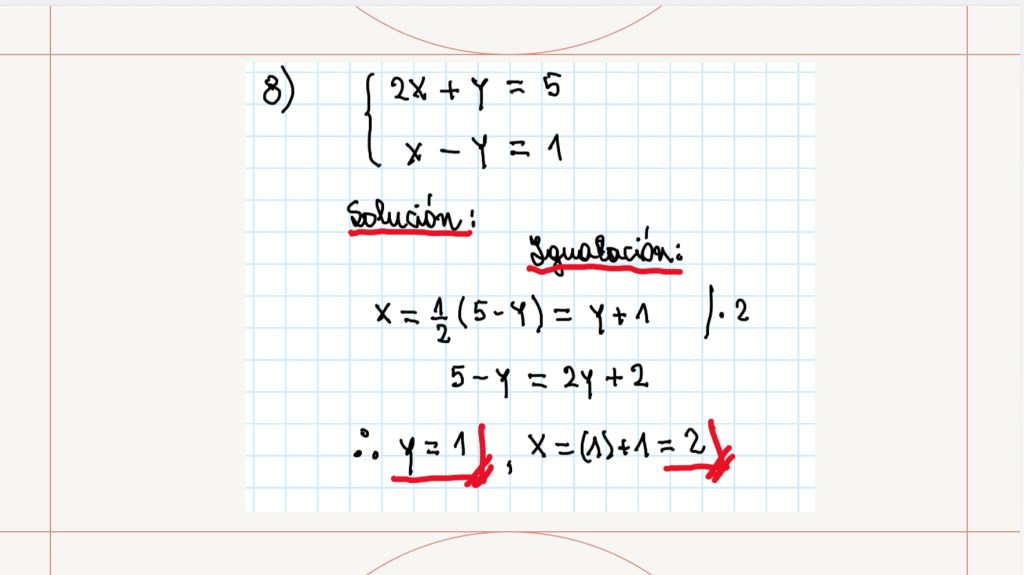 8) { 2x + y = 5
x - y = 1
Solución:
Igualación:
x = 1/2 (5 - y) = y + 1 / · 2
5 - y = 2y + 2
∴ y = 1, x = (1) + 1 = 2